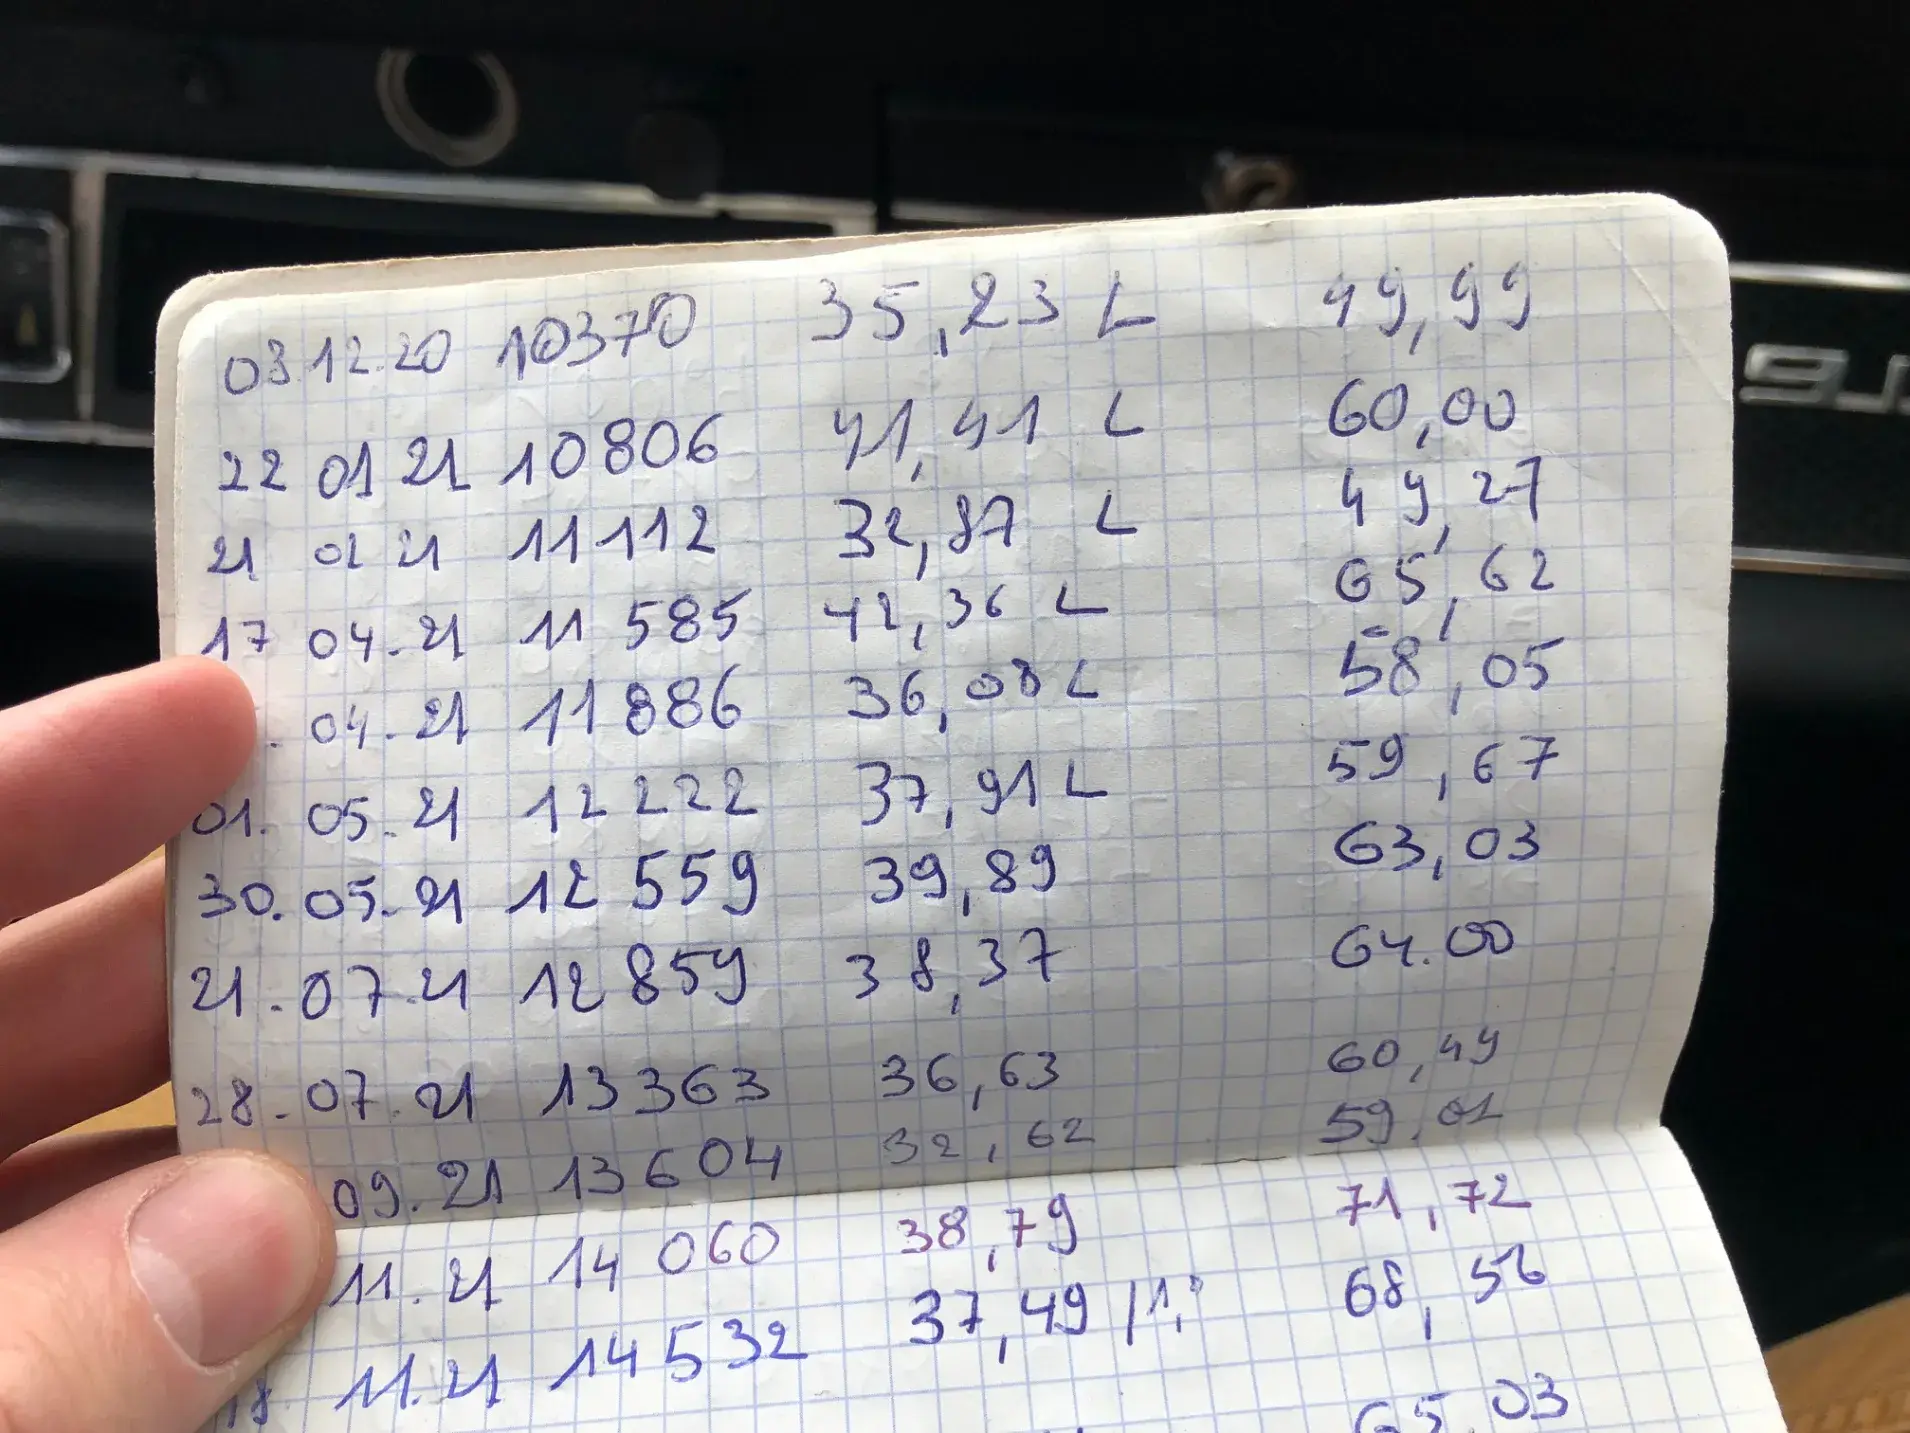 03.12.20 10370 35,23 L 49,99
22 01 21 10806 41,41 L 60,00
21 02 21 11112 32,87 L 49,27
17 04.21 11 585 42,36 L 65,62
. 04.21 11 886 36,08 L 58,05
01. 05.21 12 222 37,91 L 59,67
30. 05.21 12 559 39,89 63,03
21. 07.21 12 859 38,37 64.00
28. 07.21 13 363 36,63 60,49
09.21 13 604 32,62 59,01
11.21 14 060 38,79 71,72
18. 11.21 14 532 37,49 68,56
65,03